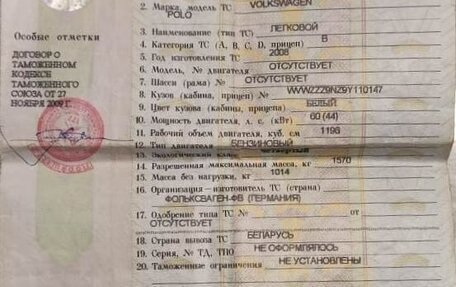 VOLKSWAGEN
2. Марка, модель ТС
POLO
3. Наименование (тип ТС) ЛЕГКОВОЙ
4. Категория ТС (A, B, C, D, прицеп) B
5. Год изготовления ТС 2008
6. Модель, № двигателя ОТСУТСТВУЕТ
7. Шасси (рама) № ОТСУТСТВУЕТ
8. Кузов (кабина, прицеп) № WVWZZZ9NZ9Y110147
9. Цвет кузова (кабины, прицепа) БЕЛЫЙ
10. Мощность двигателя, л. с. (кВт) 60 (44)
11. Рабочий объем двигателя, куб. см 1198
12. Тип двигателя БЕНЗИНОВЫЙ
13. Экологический класс четвертый
14. Разрешенная максимальная масса, кг 1570
15. Масса без нагрузки, кг 1014
16. Организация—изготовитель ТС (страна)
ФОЛЬКСВАГЕН-ФВ (ГЕРМАНИЯ)
17. Одобрение типа ТС № от
ОТСУТСТВУЕТ
18. Страна вывоза ТС БЕЛАРУСЬ
19. Серия, № ТД, ТПО НЕ ОФОРМЛЯЛОСЬ
20. Таможенные ограничения НЕ УСТАНОВЛЕНЫ
Особые отметки
ДОГОВОР О
ТАМОЖЕННОМ
КОДЕКСЕ
ТАМОЖЕННОГО
СОЮЗА ОТ 27
НОЯБРЯ 2009 Г.